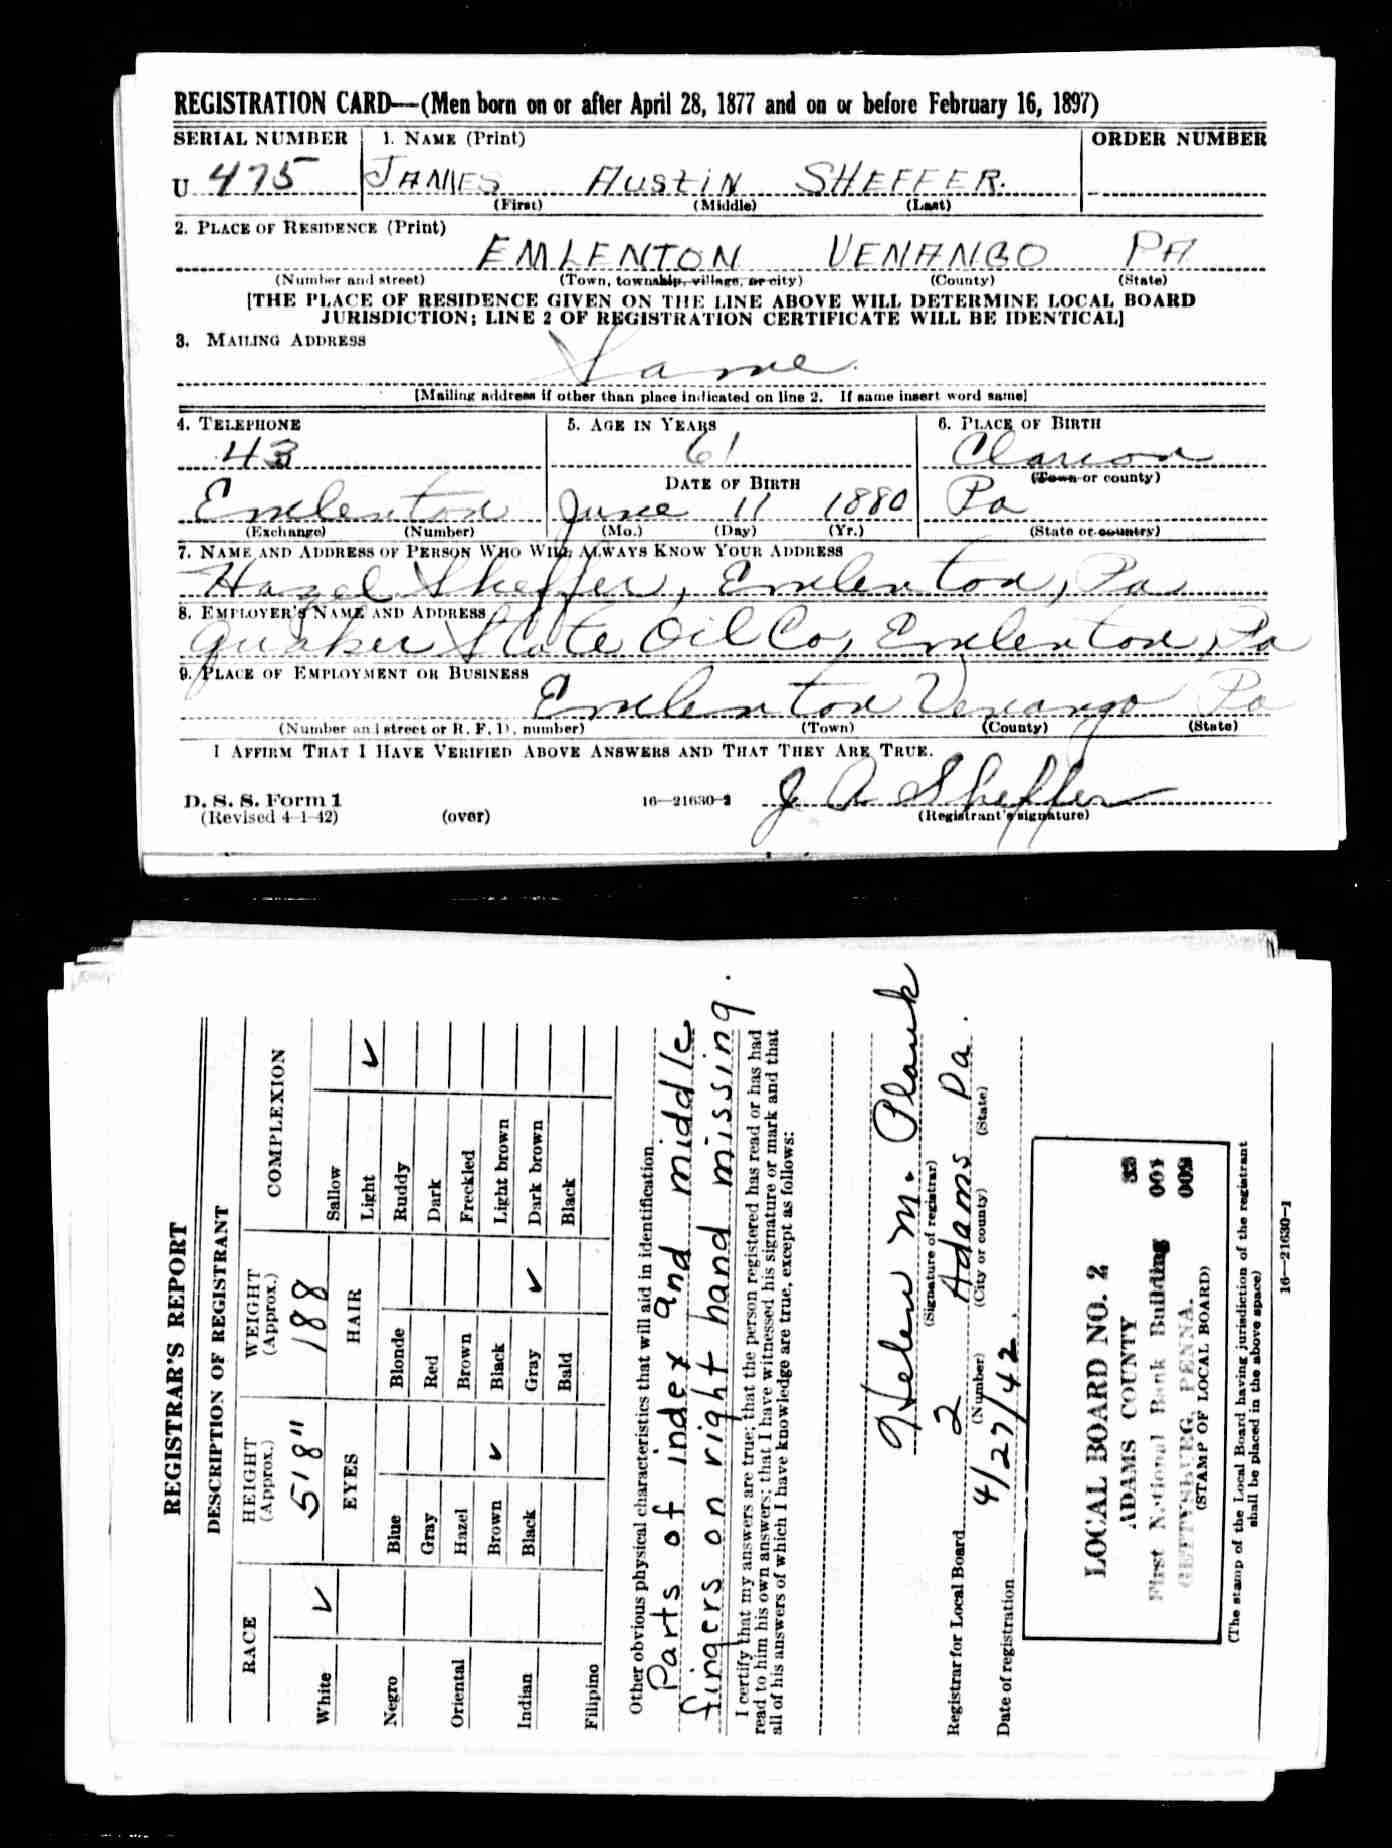 REGISTRATION CARD—(Men born on or after April 28, 1877 and on or before February 16, 1897)
SERIAL NUMBER 1. NAME (Print) ORDER NUMBER
U 475 JAMES AUSTIN SHEFFER.
(First) (Middle) (Last)
2. PLACE OF RESIDENCE (Print)
EMLENTON VENANGO PA
(Number and street) (Town, township, village, or city) (County) (State)
[THE PLACE OF RESIDENCE GIVEN ON THE LINE ABOVE WILL DETERMINE LOCAL BOARD
JURISDICTION; LINE 2 OF REGISTRATION CERTIFICATE WILL BE IDENTICAL]
3. MAILING ADDRESS
Same.
[Mailing address if other than place indicated on line 2. If same insert word same]
4. TELEPHONE 5. AGE IN YEARS 6. PLACE OF BIRTH
43 61 Clarion
DATE OF BIRTH (Town or county)
Emlenton June 11 1880 Pa
(Exchange) (Number) (Mo.) (Day) (Yr.) (State or country)
7. NAME AND ADDRESS OF PERSON WHO WILL ALWAYS KNOW YOUR ADDRESS
Hazel Sheffer, Emlenton, Pa
8. EMPLOYER'S NAME AND ADDRESS
Quaker State Oil Co, Emlenton, Pa
9. PLACE OF EMPLOYMENT OR BUSINESS
Emlenton Venango Pa
(Number and street or R. F. D. number) (Town) (County) (State)
I AFFIRM THAT I HAVE VERIFIED ABOVE ANSWERS AND THAT THEY ARE TRUE.
J A Sheffer
D. S. S. Form 1 16—21630-2
(Revised 4-1-42) (over) (Registrant's signature)
REGISTRAR'S REPORT
DESCRIPTION OF REGISTRANT
RACE HEIGHT (Approx.) WEIGHT (Approx.) COMPLEXION
5'8" 188
White ✓ Sallow
EYES HAIR Light ✓
Negro Blue Blonde Ruddy
Gray Red Dark
Oriental Hazel Brown Freckled
Brown ✓ Black Light brown
Indian Black Gray ✓ Dark brown
Bald Black
Filipino
Other obvious physical characteristics that will aid in identification
Parts of index and middle
fingers on right hand missing.
I certify that my answers are true; that the person registered has read or has had
read to him his own answers; that I have witnessed his signature or mark and that
all of his answers of which I have knowledge are true, except as follows:
Helen M. Plank
(Signature of registrar)
Registrar for Local Board 2 Adams Pa.
(Number) (City or county) (State)
Date of registration 4/27/42.
LOCAL BOARD NO. 2 33
ADAMS COUNTY 001
First National Bank Building 002
GETTYSBURG, PENNA.
(STAMP OF LOCAL BOARD)
(The stamp of the Local Board having jurisdiction of the registrant
shall be placed in the above space)
16—21630-1